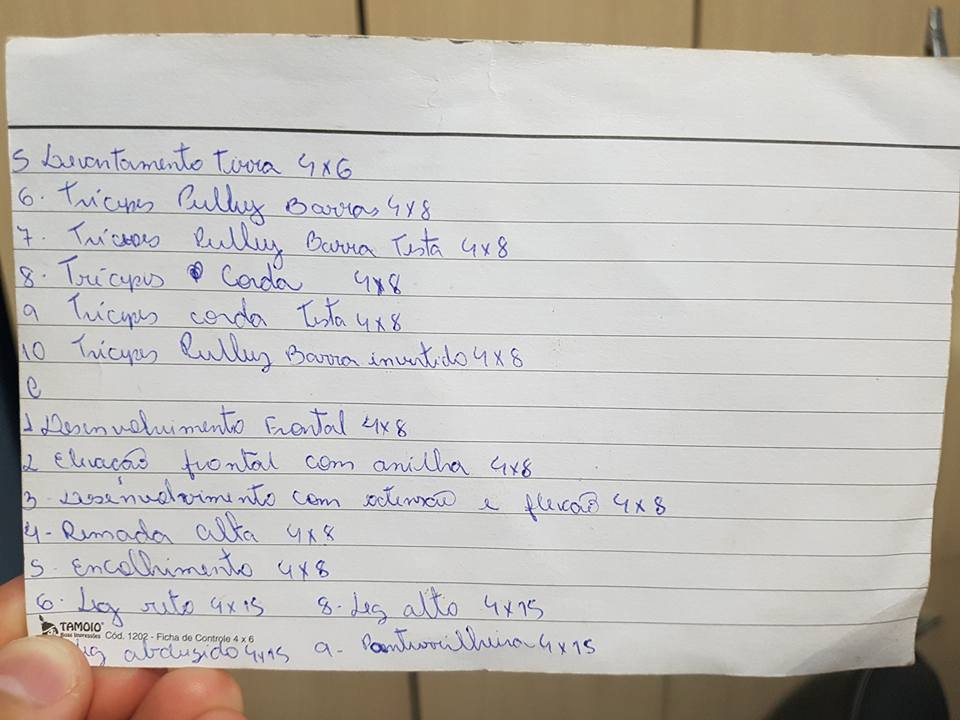 5 Levantamento terra 4x6
6. Trícepes Pulley Barras 4x8
7. Trícepes Pulley Barra Testa 4x8
8. Trícepes Corda 4x8
9 Trícepes corda Testa 4x8
10 Trícepes Pulley Barra invertido 4x8
C
1 Desenvolvimento Frontal 4x8
2 Elevação frontal com anilha 4x8
3- Desenvolvimento com extensão e flexão 4x8
4- Remada alta 4x8
5. Encolhimento 4x8
6. Leg reto 4x15 8. Leg alto 4x15
TAMOIO
Boas Impressões Cód. 1202 - Ficha de Controle 4 x 6
Leg abduzido 4x15 9- Panturrilheira 4x15